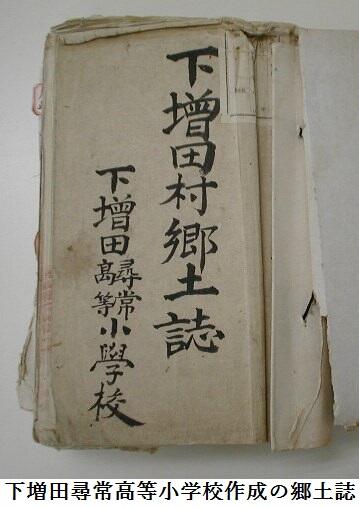 下増田村郷土誌
下増田尋常高等小學校
下増田尋常高等小学校作成の郷土誌